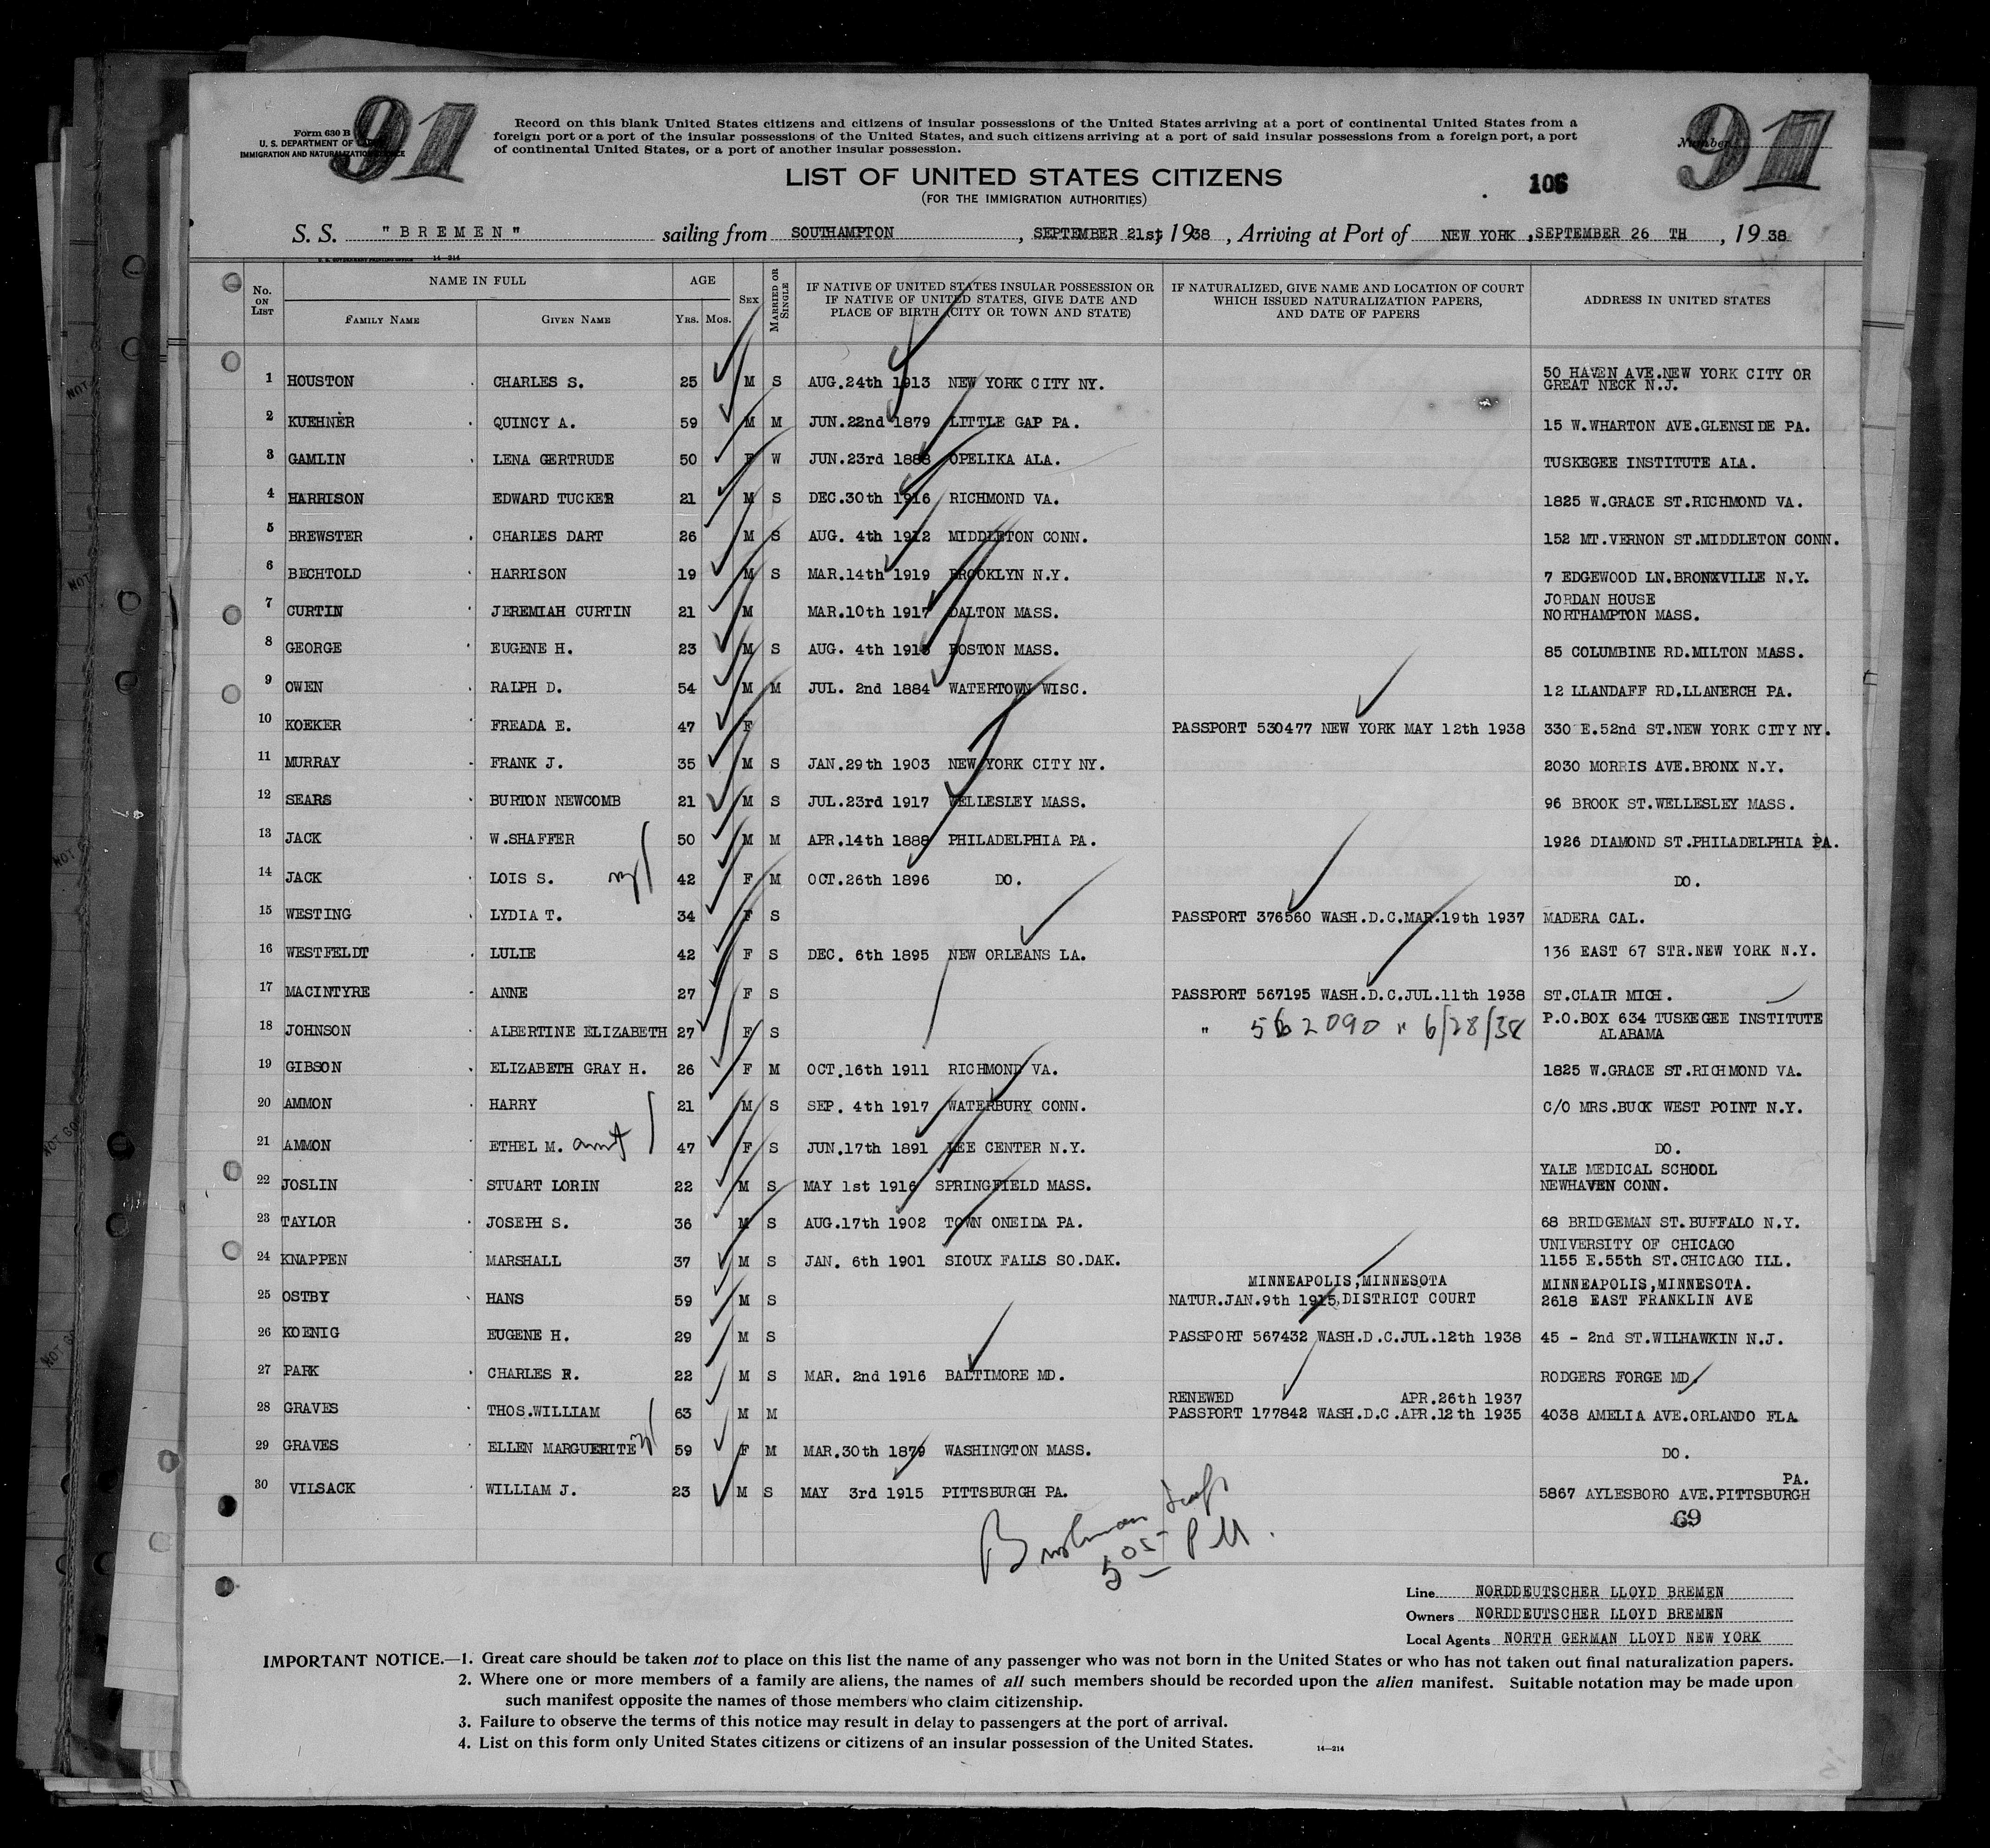 91
91
Form 630 B
U. S. DEPARTMENT OF LABOR
IMMIGRATION AND NATURALIZATION SERVICE
Record on this blank United States citizens and citizens of insular possessions of the United States arriving at a port of continental United States from a
foreign port or a port of the insular possessions of the United States, and such citizens arriving at a port of said insular possessions from a foreign port, a port
of continental United States, or a port of another insular possession.
Number
LIST OF UNITED STATES CITIZENS
106
(FOR THE IMMIGRATION AUTHORITIES)
S. S. "BREMEN" sailing from SOUTHAMPTON, SEPTEMBER 21st, 1938, Arriving at Port of NEW YORK, SEPTEMBER 26 TH, 1938
U. S. GOVERNMENT PRINTING OFFICE 14—214
No. ON LIST NAME IN FULL AGE SEX MARRIED OR SINGLE IF NATIVE OF UNITED STATES INSULAR POSSESSION OR IF NATIVE OF UNITED STATES, GIVE DATE AND PLACE OF BIRTH (CITY OR TOWN AND STATE) IF NATURALIZED, GIVE NAME AND LOCATION OF COURT WHICH ISSUED NATURALIZATION PAPERS, AND DATE OF PAPERS ADDRESS IN UNITED STATES
FAMILY NAME GIVEN NAME YRS. MOS.
1 HOUSTON CHARLES S. 25 M S AUG.24th 1913 NEW YORK CITY NY. 50 HAVEN AVE.NEW YORK CITY OR
GREAT NECK N.J.
2 KUEHNER QUINCY A. 59 M M JUN.22nd 1879 LITTLE GAP PA. 15 W.WHARTON AVE.GLENSIDE PA.
3 GAMLIN LENA GERTRUDE 50 F W JUN.23rd 1888 OPELIKA ALA. TUSKEGEE INSTITUTE ALA.
4 HARRISON EDWARD TUCKER 21 M S DEC.30th 1916 RICHMOND VA. 1825 W.GRACE ST.RICHMOND VA.
5 BREWSTER CHARLES DART 26 M S AUG. 4th 1912 MIDDLETON CONN. 152 MT.VERNON ST.MIDDLETON CONN.
6 BECHTOLD HARRISON 19 M S MAR.14th 1919 BROOKLYN N.Y. 7 EDGEWOOD LN.BRONXVILLE N.Y.
7 CURTIN JEREMIAH CURTIN 21 M MAR.10th 1917 DALTON MASS. JORDAN HOUSE
NORTHAMPTON MASS.
8 GEORGE EUGENE H. 23 M S AUG. 4th 1915 BOSTON MASS. 85 COLUMBINE RD.MILTON MASS.
9 OWEN RALPH D. 54 M M JUL. 2nd 1884 WATERTOWN WISC. 12 LLANDAFF RD.LLANERCH PA.
10 KOEKER FREADA E. 47 F PASSPORT 530477 NEW YORK MAY 12th 1938 330 E.52nd ST.NEW YORK CITY NY.
11 MURRAY FRANK J. 35 M S JAN.29th 1903 NEW YORK CITY NY. 2030 MORRIS AVE.BRONX N.Y.
12 SEARS BURTON NEWCOMB 21 M S JUL.23rd 1917 WELLESLEY MASS. 96 BROOK ST.WELLESLEY MASS.
13 JACK W.SHAFFER 50 M M APR.14th 1888 PHILADELPHIA PA. 1926 DIAMOND ST.PHILADELPHIA PA.
14 JACK LOIS S. 42 F M OCT.26th 1896 DO. DO.
15 WESTING LYDIA T. 34 F S PASSPORT 376560 WASH.D.C.MAR.19th 1937 MADERA CAL.
16 WESTFELDT LULIE 42 F S DEC. 6th 1895 NEW ORLEANS LA. 136 EAST 67 STR.NEW YORK N.Y.
17 MACINTYRE ANNE 27 F S PASSPORT 567195 WASH.D.C.JUL.11th 1938 ST.CLAIR MICH.
18 JOHNSON ALBERTINE ELIZABETH 27 F S " 562090 " 6/28/38 P.O.BOX 634 TUSKEGEE INSTITUTE
ALABAMA
19 GIBSON ELIZABETH GRAY H. 26 F M OCT.16th 1911 RICHMOND VA. 1825 W.GRACE ST.RICHMOND VA.
20 AMMON HARRY 21 M S SEP. 4th 1917 WATERBURY CONN. C/O MRS.BUCK WEST POINT N.Y.
21 AMMON ETHEL M. aunt 47 F S JUN.17th 1891 LEE CENTER N.Y. DO.
22 JOSLIN STUART LORIN 22 M S MAY 1st 1916 SPRINGFIELD MASS. YALE MEDICAL SCHOOL
NEWHAVEN CONN.
23 TAYLOR JOSEPH S. 36 M S AUG.17th 1902 TOWN ONEIDA PA. 68 BRIDGEMAN ST.BUFFALO N.Y.
24 KNAPPEN MARSHALL 37 M S JAN. 6th 1901 SIOUX FALLS SO.DAK. UNIVERSITY OF CHICAGO
1155 E.55th ST.CHICAGO ILL.
MINNEAPOLIS,MINNESOTA MINNEAPOLIS,MINNESOTA.
25 OSTBY HANS 59 M S NATUR.JAN.9th 1915,DISTRICT COURT 2618 EAST FRANKLIN AVE
26 KOENIG EUGENE H. 29 M S PASSPORT 567432 WASH.D.C.JUL.12th 1938 45 - 2nd ST.WILHAWKIN N.J.
27 PARK CHARLES R. 22 M S MAR. 2nd 1916 BALTIMORE MD. RODGERS FORGE MD.
RENEWED APR.26th 1937
28 GRAVES THOS.WILLIAM 63 M M PASSPORT 177842 WASH.D.C.APR.12th 1935 4038 AMELIA AVE.ORLANDO FLA
29 GRAVES ELLEN MARGUERITE 59 F M MAR.30th 1879 WASHINGTON MASS. DO.
PA.
30 VILSACK WILLIAM J. 23 M S MAY 3rd 1915 PITTSBURGH PA. 5867 AYLESBORO AVE.PITTSBURGH
69
5 05 PM.
Line NORDDEUTSCHER LLOYD BREMEN
Owners NORDDEUTSCHER LLOYD BREMEN
Local Agents NORTH GERMAN LLOYD NEW YORK
IMPORTANT NOTICE.—1. Great care should be taken not to place on this list the name of any passenger who was not born in the United States or who has not taken out final naturalization papers.
2. Where one or more members of a family are aliens, the names of all such members should be recorded upon the alien manifest. Suitable notation may be made upon
such manifest opposite the names of those members who claim citizenship.
3. Failure to observe the terms of this notice may result in delay to passengers at the port of arrival.
4. List on this form only United States citizens or citizens of an insular possession of the United States.
14—214